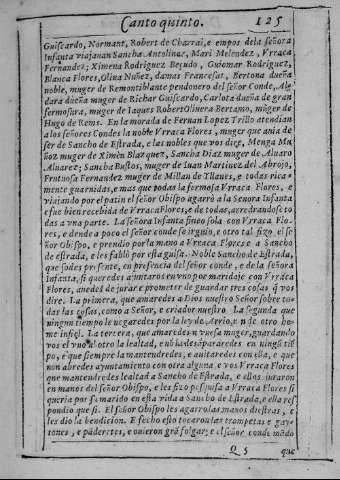 Canto quinto. 125
Guiscardo, Normant, Robert de Charrai, e empos dela señora
Infanta viajauan Sancha Antolina, Mari Melendez, Vrraca
Fernandez; Ximena Rodriguez Bejudo, Guiomar Rodriguez,
Blanca Flores, Oliua Nuñez, damas Francesas, Bertona dueña
noble, muger de Remontiblante pendonero del señor Conde, Al-
dara dueña muger de Richar Guiscardo, Carlota dueña de gran
fermosura, muger de Iaques Robert Oliuera Bertano, muger de
Hugo de Rems. En la morada de Fernan Lopez Trillo atendian
a los señores Condes la noble Vrraca Flores, muger que auia de
ser de Sancho de Estrada, e las nobles que vos dire, Menga Mu
ñoz muger de Ximen Blazquez, Sancha Diaz muger de Aluaro
Aluarez; Sancha Bustos, muger de Iuan Martinez del Abrojo,
Frutuosa Fernandez muger de Millan de Yllanes, e todas rica
mente guarnidas, e mas que todas la fermosa Vrraca Flores, e
viajando por el patin el señor Obispo agarrò a la Señora Infanta
e fue bien recebida de Vrraca Flores, e de todas, acredrandose to
das a vna parte. La señora Infanta fincò sola con Vrraca Flo-
res, e dende a poco el señor conde se irguio, e otro tal fizo el se
ñor Obispo, e prendio por la mano a Vrraca Flores e a Sancho
de estrada, e les fablò por esta guisa. Noble Sancho de Estrada,
que sodes presente, en presencia del señor conde, e dela señora
Infanta, si queredes ajuntaros en vno por maridaje con Vrraca
Flores, auedes de jurar e prometer de guardar tres cosas q̃ vos
dire. La primera, que amaredes a Dios nuestro Señor sobre to
das las cosas, como a Señor, e criador nuestro. La segunda que
ningun tiempo
los e vuestra muger, guardando
vos el vno al otro la lealtad, e
po, e que siempre la mantendredes, e auitaredes con ella, e que
non abredes ayuntamiento con otra alguna, e vos Vrraca Flores
que mantendredes lealtad a Sancho de Estrada, e ellos juraron
en manos del señor Obispo, e les fizo pesquisa a Vrraca Flores si
queria por su marido en esta vida a Sancho de Estrada, e ella res
pondio que si. El señor Obispo les agarrò las manos diestras, e
les dio la bendicion. E fecho esto tocaron las trompetas e gay-
tones, e panderetes, e ouieron grã folgar; e el señor conde mãdo
Q 5 que